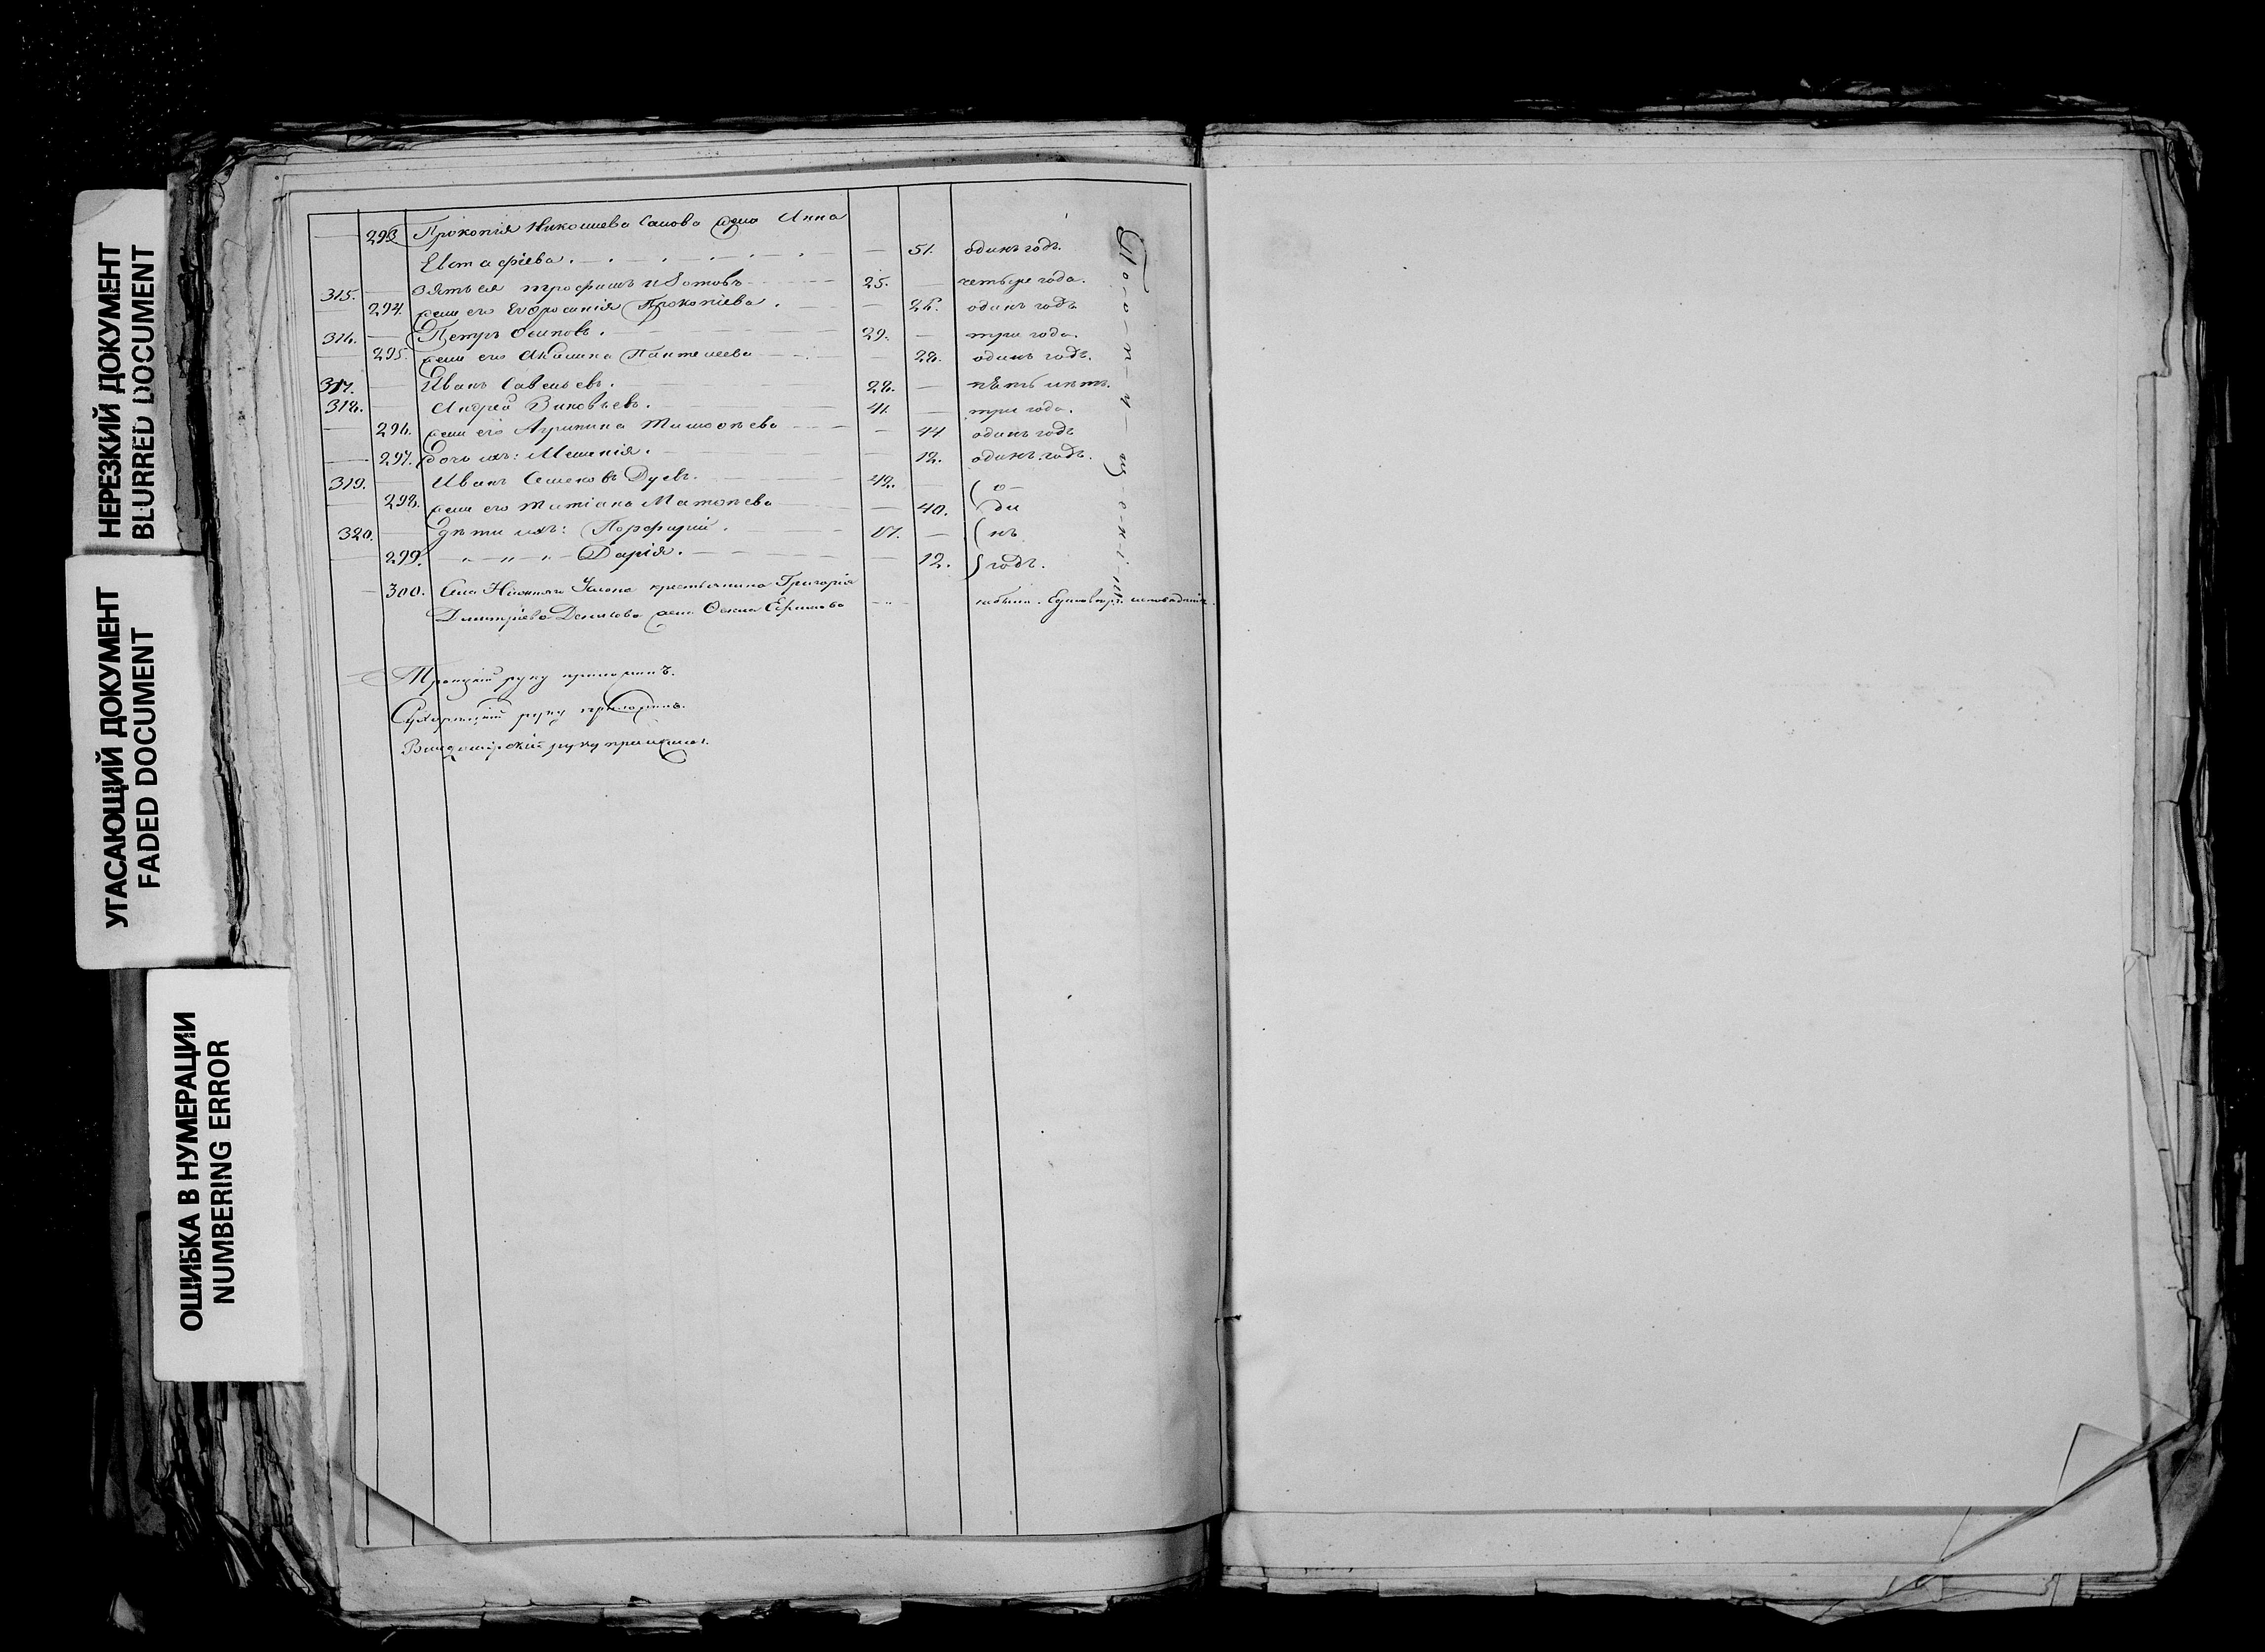 НЕРЕЗКИЙ ДОКУМЕНТ
BLURRED DOCUMENT
УГАСАЮЩИЙ ДОКУМЕНТ
FADED DOCUMENT
ОШИБКА В НУМЕРАЦИИ
NUMBERING ERROR
— 293. Прокопія Николаева Сапова жена Анна
Евстафіева. — 51. одинъ годъ.
315. — Зять ея Трофимъ Изотовъ 25. — четыре года.
— 294. жена его Евфросинія Прокопіева. — 26. одинъ годъ
316. — Петръ Осиповъ. 29. — три года.
— 295. жена его Акилина Пантелеева — 28. одинъ годъ.
317. — Иванъ Савельевъ. 28. — пять лѣтъ.
318. Андрей Зиновьевъ. 41. — три года.
— 296. жена его Агрипина Тимофѣева — 44. одинъ годъ
— 297. дочь ихъ: Меланія. — 12. одинъ годъ.
319. — Иванъ Семеновъ 42. — о-
— 298. жена его Татіана Матвѣева — 40. ди
320. — Дѣти ихъ: Порфирій. 17. — нъ
— 299. „ „ „ Дарія. — 12. годъ.
— 300. Села Нижняго Услона крестьянина Григорія
Дмитріева жена
Троицкій руку приложилъ.
руку приложилъ.
руку приложилъ.